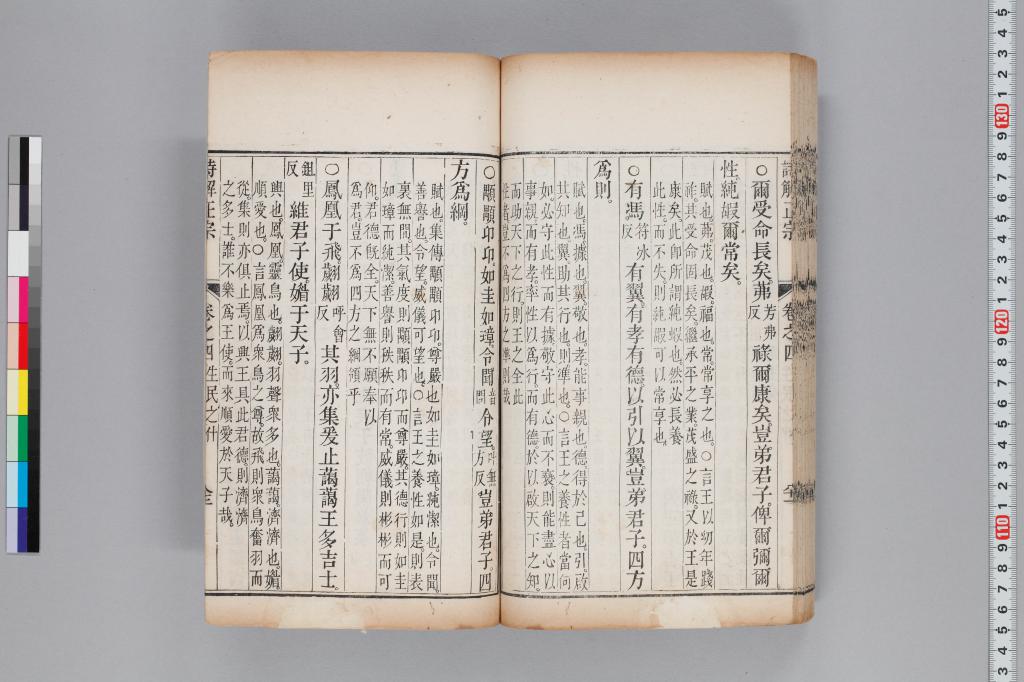 詩解正宗
卷之四
○爾受命長矣茀芳弗反祿爾康矣豈弟君子俾爾彌爾
性純嘏爾常矣
賦也茀茂也嘏福也常常享之也○言王以幼年踐
祚其受命固長矣繼承平之業茂盛之祿又於王是
康矣此卽所謂純嘏也然必長養
此性而不失則純嘏可以常享也
○有馮符冰反有翼有孝有德以引以翼豈弟君子四方
爲則
賦也馮據也翼敬也孝能事親也德得於己也引啟
其知也翼助其行也則準也○言王之養性者當何
如必守此性而有據敬守此心而不衰則能盡心以
事親而有孝率性以爲行而有德於以啟天下之知
而助天下之行則王之全此
性者豈不爲四方之準則哉
○顒顒卬卬如圭如璋令聞音問令望叶無方反豈弟君子四
方爲綱
賦也集傳顒顒卬卬尊嚴也如圭如璋純潔也令聞
善譽也令望威儀可望也○言王之養性如是則表
裏無間其氣度則顒顒卬卬而尊嚴其德行則如圭
如璋而純潔善譽則秩秩而有常威儀則彬彬而可
仰君德旣全天下無不願奉以
爲君豈不爲四方之綱領乎
○鳳凰于飛翽翽呼會反其羽亦集爰止藹藹王多吉士
鉏里反維君子使媚于天子
興也鳳凰靈鳥也翽翽羽聲衆多也藹藹濟濟也媚
順愛也○言鳳凰爲衆鳥之尊故飛則衆鳥奮羽而
從集則亦俱止焉以興王具此君德則濟濟
之多士誰不樂爲王使而來順愛於天子哉
詩解正宗
卷之四
生民之什